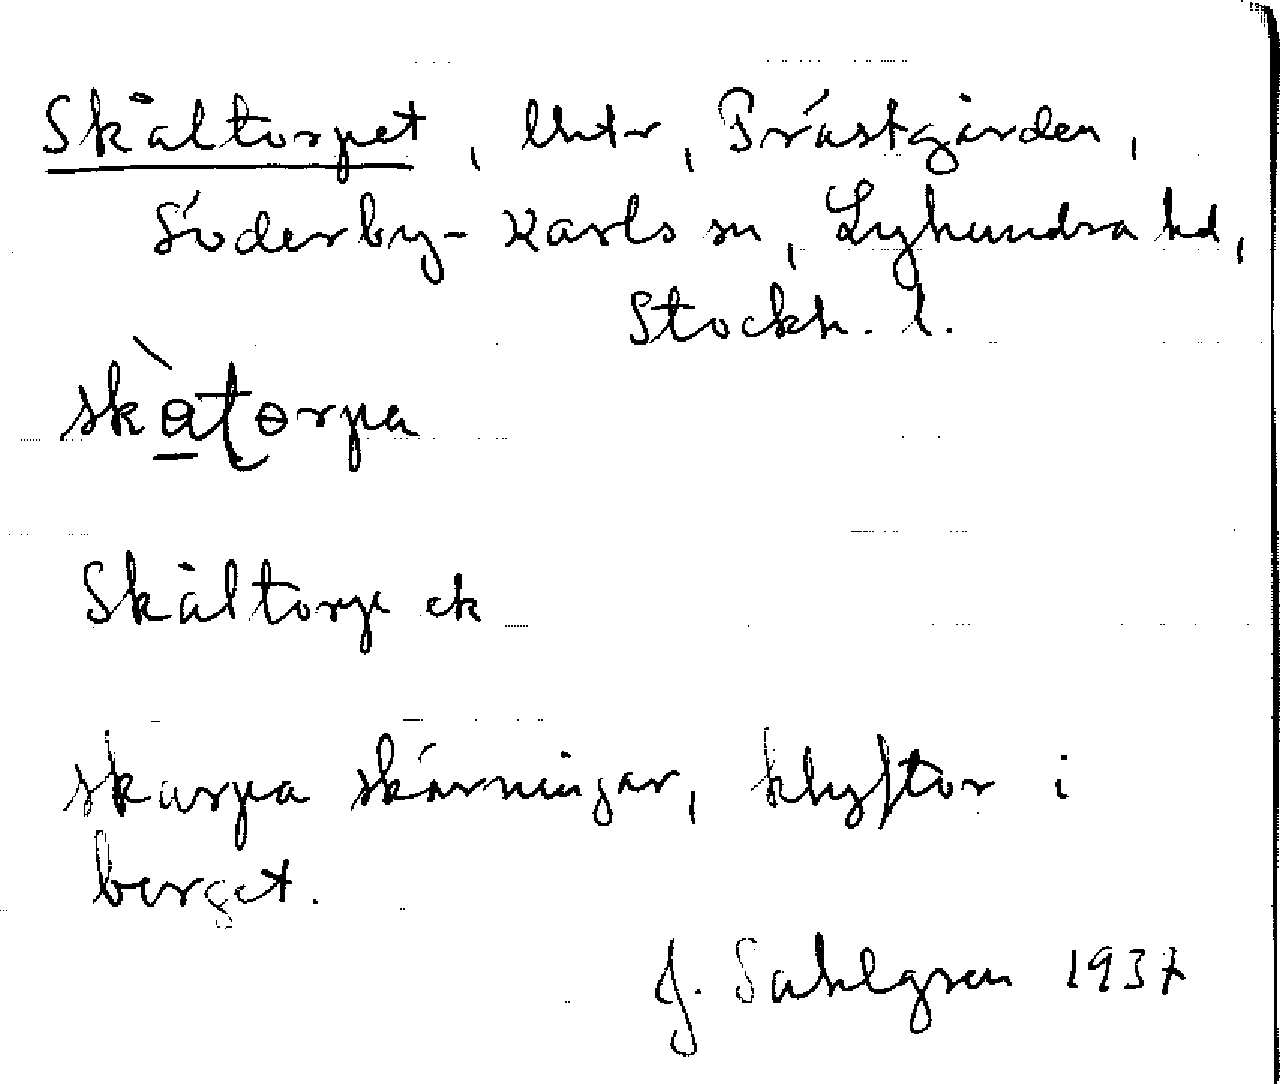 Skåltorpet, Untr, Prästgården,
Söderby-Karls sn, Lyhundra hd,
Stockh. l.
skàtorpa
Skåltorp ek
skarpa skärningar, klyftor i
berget.
J. Sahlgren 1937